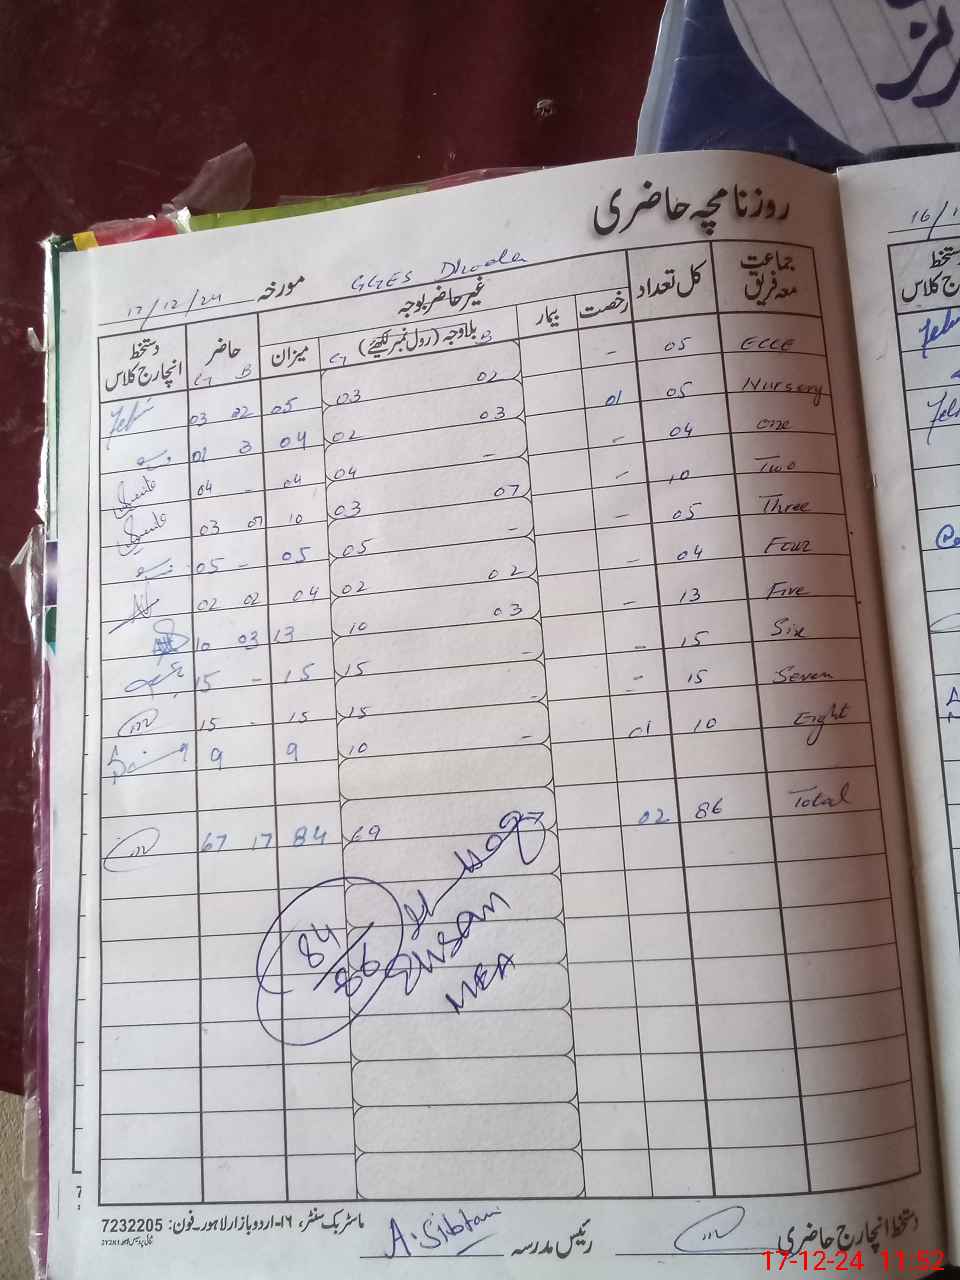 روزنامچہ حاضری
17/12/24 مورخہ GGES Dhoda
جماعت معہ فریق کل تعداد غیر حاضر بوجہ حاضر دستخط انچارج کلاس
رخصت بیمار بلاوجہ (رول نمبر لکھئے) میزان
G B G B
ECCE 05 - 02 03 05 02 03
Nursery 05 01 03 02 04 3 01
One 04 - - 04 04 - 04
Two 10 - 07 03 10 07 03
Three 05 - - 05 05 - 05
Four 04 - 02 02 04 02 02
Five 13 - 03 10 13 03 10
Six 15 - - 15 15 - 15
Seven 15 - - 15 15 - 15
Eight 10 01 - 10 9 9
Total 86 02 17 69 84 17 67
84/86
MEA
دستخط انچارج حاضری
رئیس مدرسہ A. Sibtain
ماسٹر بک سنٹر، ۱۶-اردو بازار لاہور-فون: 7232205
16/1
دستخط
ج کلاس
17-12-24 11:52